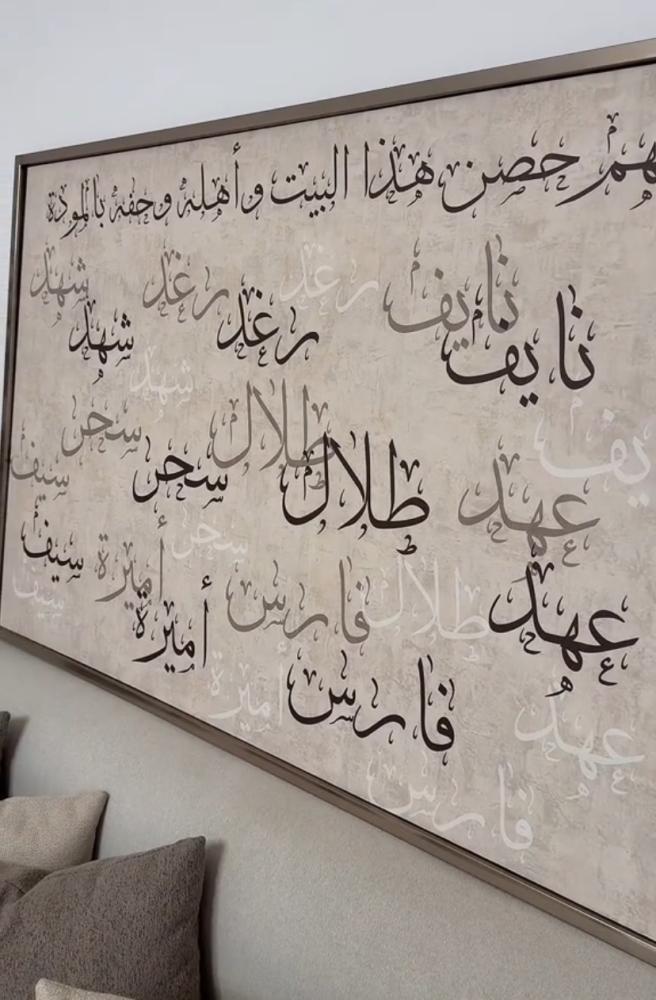 هم حصن هذا البيت وأهله وحفه بالمودة
نايف رغد رغد شهد
نايف رغد شهد
شهد
يف طلال سحر سيف
عهد طلال سحر سيف
سحر
عهد طلال فارس أميرة سيف
أميرة
عهد فارس أميرة
فارس